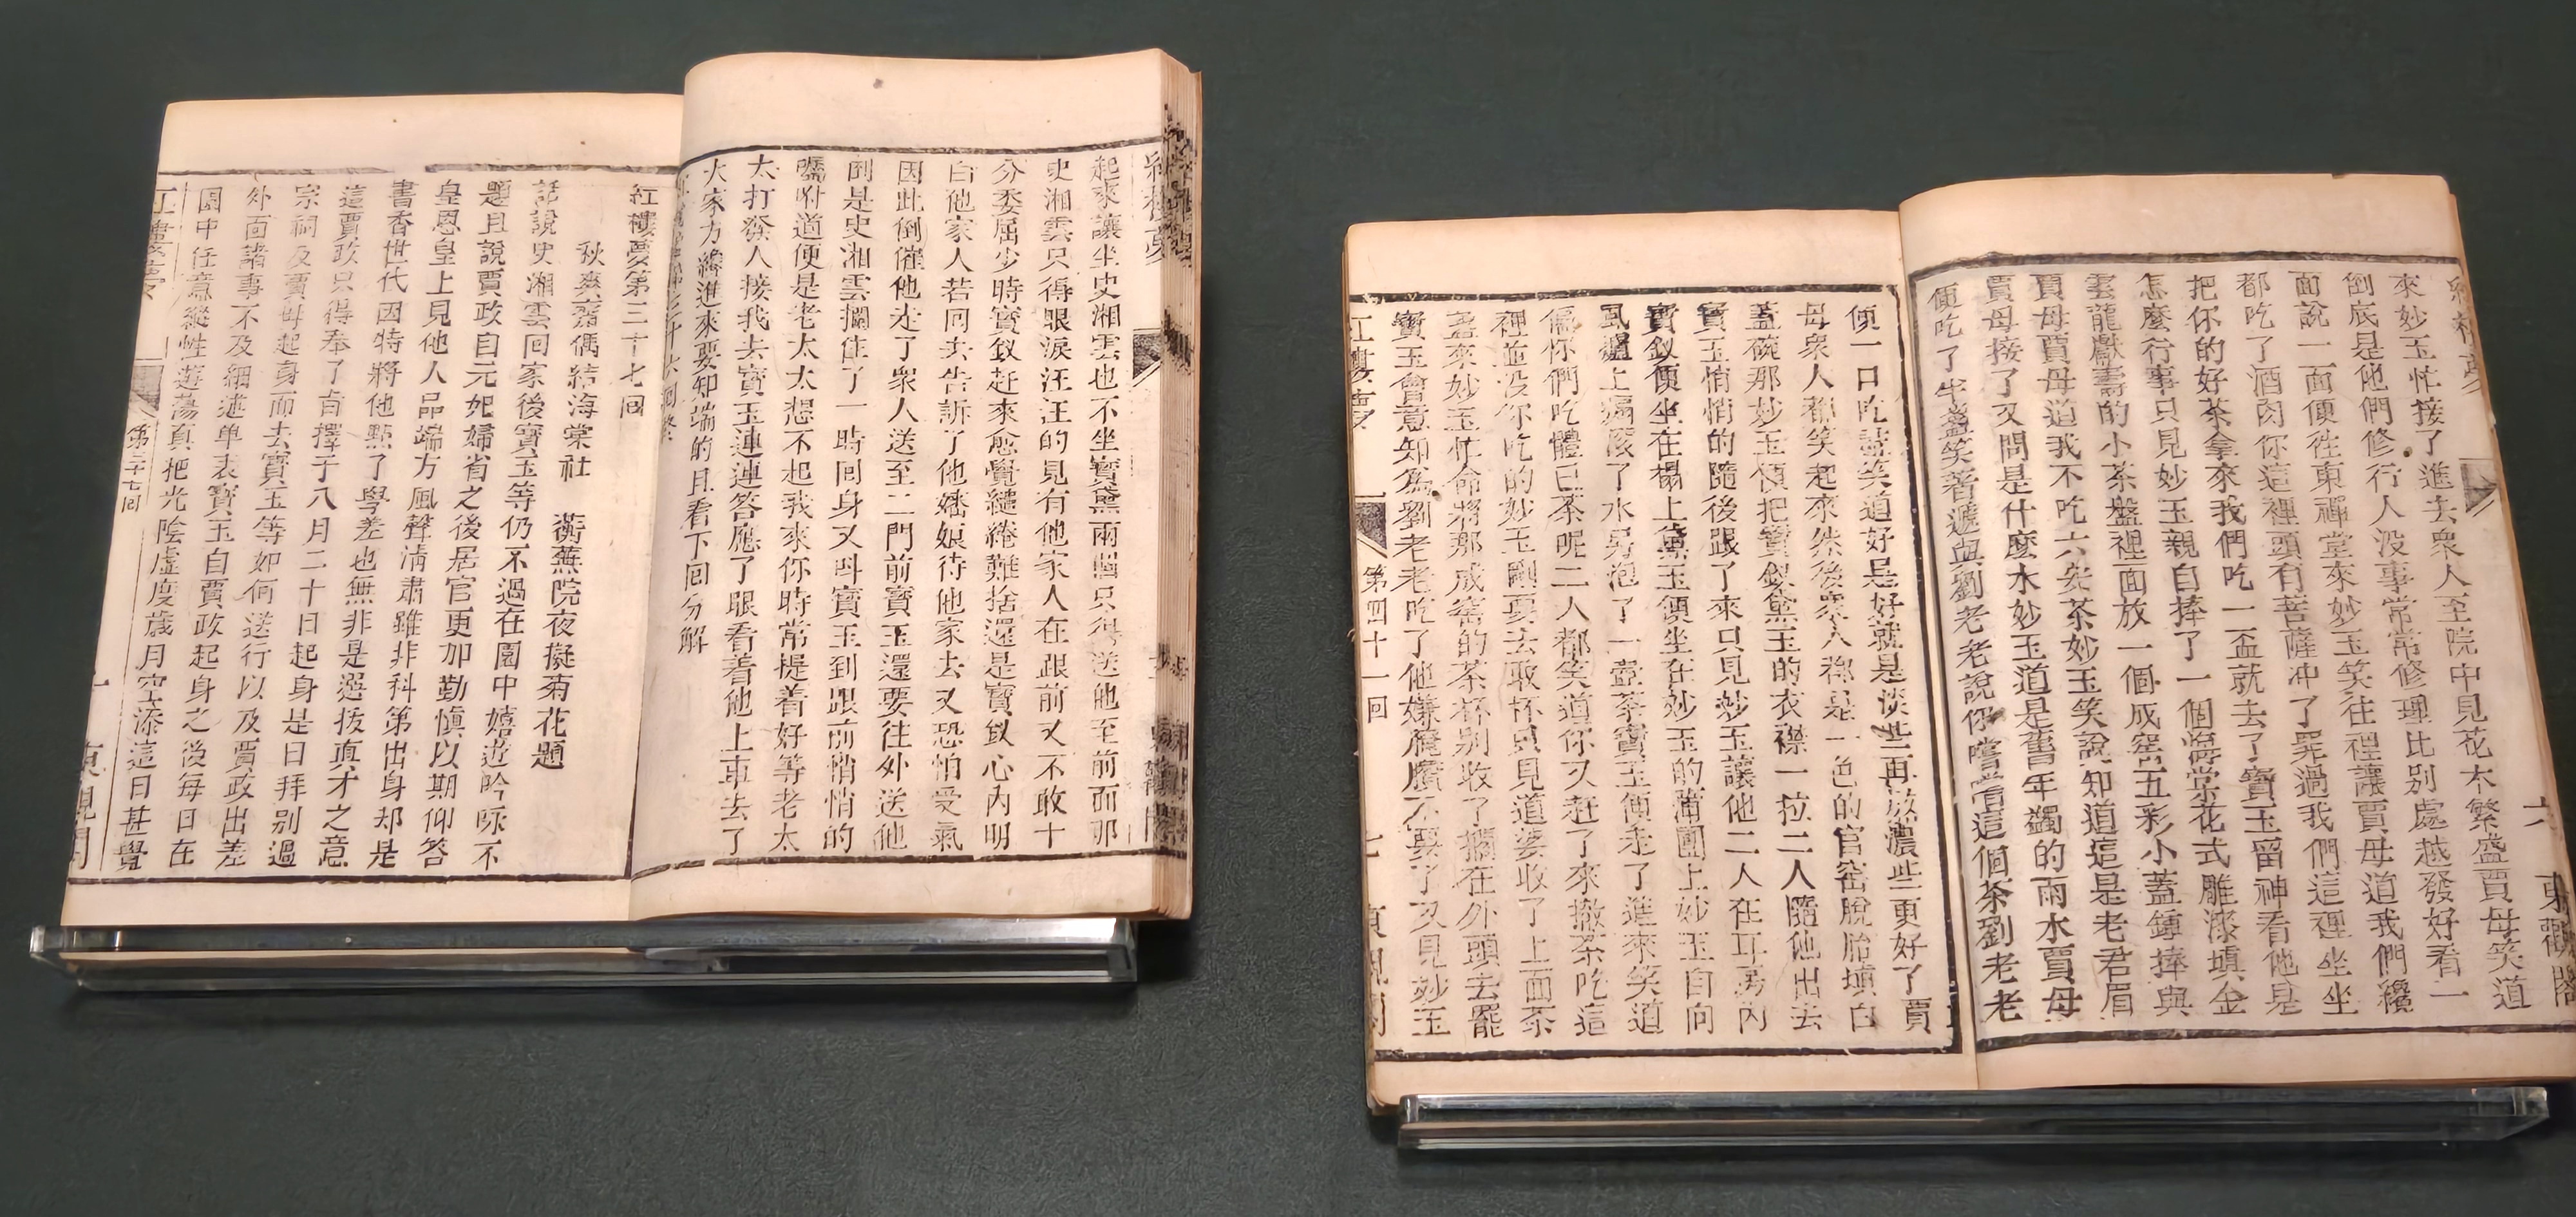 起來讓坐史湘雲也不坐寶黛兩個只得送他至前面那
史湘雲只得眼淚汪汪的見有他家人在跟前又不敢十
分委屈少時寶釵赶來愈覺繾綣難捨還是寶釵心內明
白他家人若回去告訴了他嬸娘待他家去又恐怕受氣
因此倒催他走了衆人送至二門前寶玉還要往外送他
倒是史湘雲攔住了一時回身又叫寶玉到跟前悄悄的
囑咐道便是老太太想不起我來你時常提着好等老太
太打發人接我去寶玉連連答應了眼看着他上車去了
大家方纔進來要知端的且看下回分解
紅樓夢第三十七回
秋爽齋偶結海棠社 蘅蕪院夜擬菊花題
話說史湘雲回家後寶玉等仍不過在園中嬉遊吟咏不
題且說賈政自元妃歸省之後居官更加勤慎以期仰答
皇恩皇上見他人品端方風聲清肅雖非科第出身却是
書香世代因特將他點了學差也無非是選拔真才之意
這賈政只得奉了旨擇于八月二十日起身是日拜別過
宗祠及賈母起身而去寶玉等如何送行以及賈政出差
外面諸事不及細述单表寶玉自賈政起身之後每日在
園中任意縱性遊蕩真把光陰虛度歲月空添這日甚覺
第三十七回
一
東觀閣
紅樓夢
六
東觀閣
來妙玉忙接了進去衆人至院中見花木繁盛賈母笑道
倒底是他們修行人没事常常修理比别處越發好看一
面說一面便往東禪堂來妙玉笑往裡讓賈母道我們纔
都吃了酒肉你這裡頭有菩薩冲了罪過我們這裡坐坐
把你的好茶拿來我們吃一盃就去了寶玉留神看他是
怎麼行事只見妙玉親自捧了一個海棠花式雕漆填金
雲龍獻壽的小茶盤裡面放一個成窑五彩小蓋鍾捧與
賈母賈母道我不吃六安茶妙玉笑說知道這是老君眉
賈母接了又問是什麼水妙玉道是舊年蠲的雨水賈母
便吃了半盞笑著遞與劉老老說你嚐嚐這個茶劉老老
便一口吃盡笑道好是好就是淡些再放濃些更好了賈
母衆人都笑起來然後衆人都是一色的官窑脫胎填白
蓋碗那妙玉便把寶釵黛玉的衣襟一拉二人隨他出去
寶玉悄悄的隨後跟了來只見妙玉讓他二人在耳房內
寶釵便坐在榻上黛玉便坐在妙玉的蒲團上妙玉自向
風爐上搧滚了水另泡了一壺茶寶玉便走了進來笑道
偏你們吃體己茶呢二人都笑道你又赶了來撤茶吃這
裡並没你吃的妙玉剛要去取杯只見道婆收了上面茶
盞來妙玉忙命將那成窑的茶杯别收了擱在外頭去罷
寶玉會意知爲劉老老吃了他嫌腌臢不要了又見妙玉
紅樓夢
第四十一回
七
東觀閣